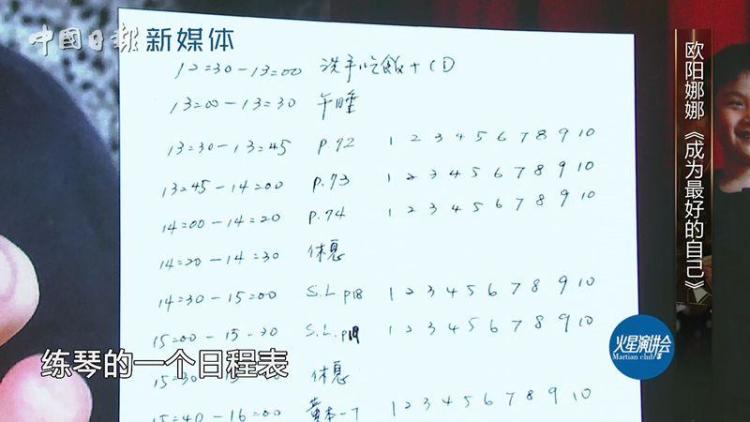 中國日報 新媒体
12=30-13=00 洗手吃飯+CD
13=00-13=30 午睡
13=30-13=45 p.72 1 2 3 4 5 6 7 8 9 10
13=45-14=00 p.73 1 2 3 4 5 6 7 8 9 10
14=00-14=20 p.74 1 2 3 4 5 6 7 8 9 10
14=20-14=30 休息
14=30-15=00 S.L p18 1 2 3 4 5 6 7 8 9 10
15=00-15-30 S.L.p19 1 2 3 4 5 6 7 8 9 10
15=30 休息
15=40-16=00 1 2 3 4 5 6 7 8 9 10
练琴的一个日程表
欧阳娜娜《成为最好的自己》
火星演讲会
Martian club